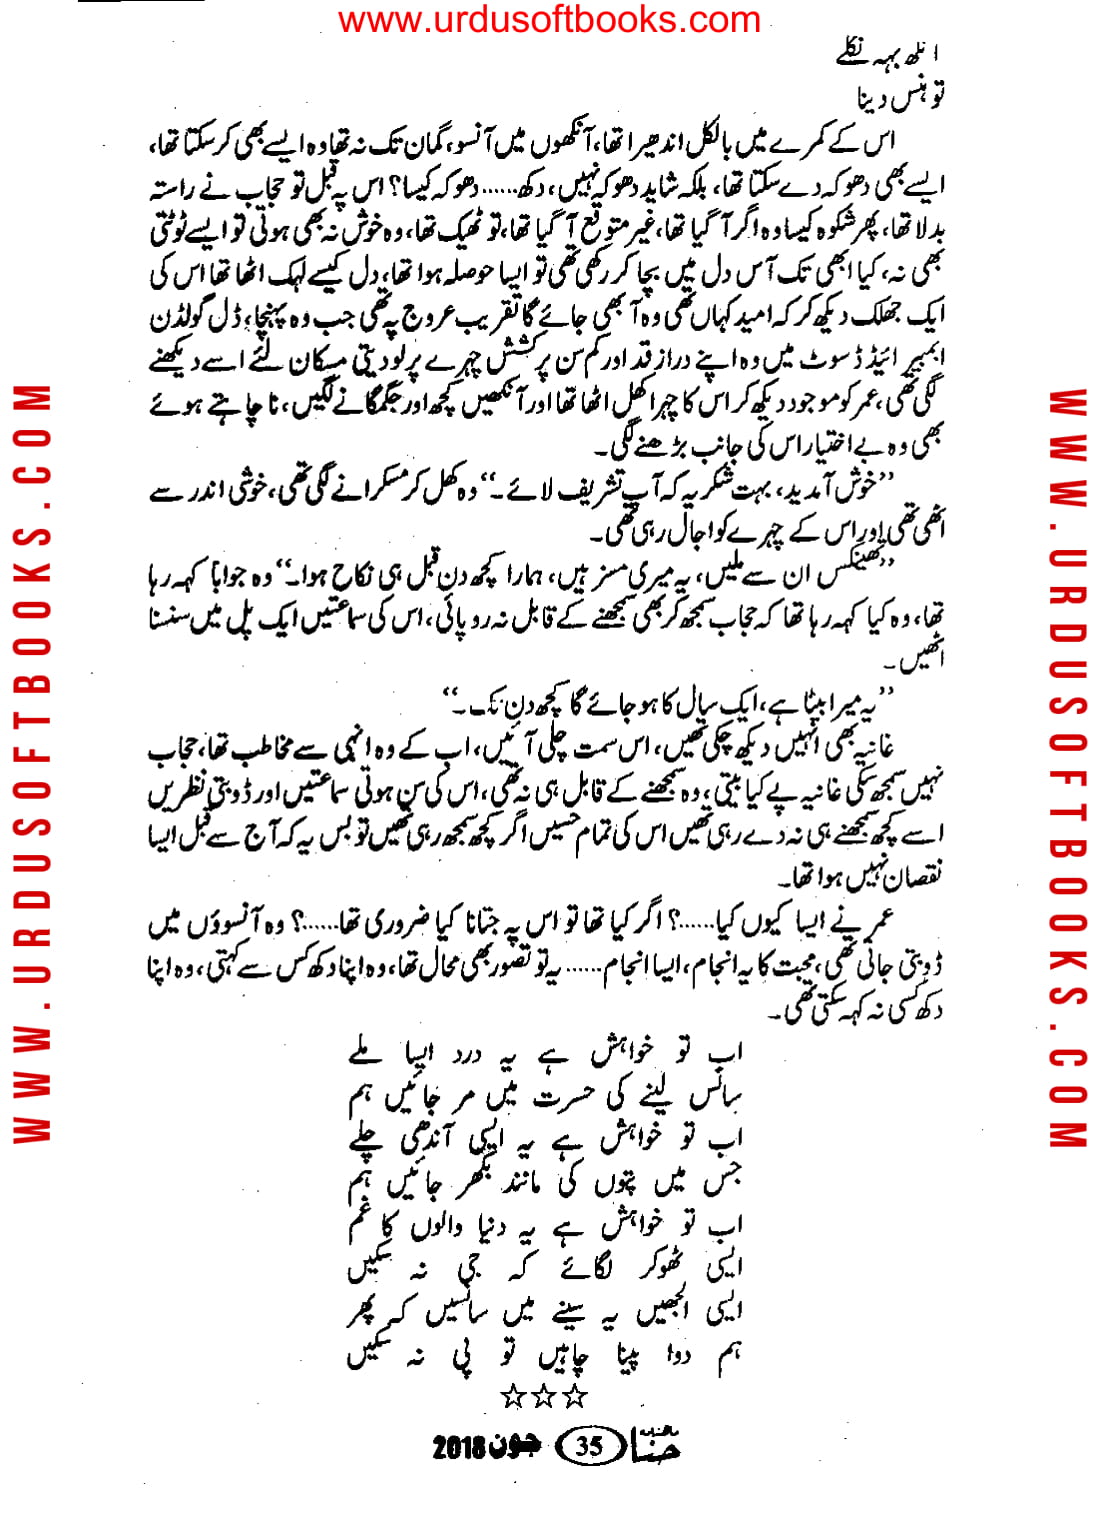 www.urdusoftbooks.com
بہہ نکلے
تو ہنس دینا
اس کے کمرے میں بالکل اندھیرا تھا، آنکھوں میں آنسو، گمان تک نہ تھا وہ ایسے بھی کر سکتا تھا،
ایسے بھی دھوکہ دے سکتا تھا، بلکہ شاید دھوکہ نہیں، دکھ...... دھوکہ کیسا؟ اس پہ قبل تو حجاب نے راستہ
بدلا تھا، پھر شکوہ کیسا وہ اگر آ گیا تھا، غیر متوقع آ گیا تھا، تو ٹھیک تھا، وہ خوش نہ بھی ہوتی تو ایسے ٹوٹتی
بھی نہ، کیا ابھی تک آس دل میں بچا کر رکھی تھی تو ایسا حوصلہ ہوا تھا، دل کیسے لہک اٹھا تھا اس کی
ایک جھلک دیکھ کر کہ امید کہاں تھی وہ آ بھی جائے گا تقریب عروج پہ تھی جب وہ پہنچا، ڈل گولڈن
ایمبرائیڈڈ سوٹ میں وہ اپنے دراز قد اور کم سن پر کشش چہرے پر لو دیتی مسکان لئے اسے دیکھنے
لگی تھی، عمر کو موجود دیکھ کر اس کا چہرا کھل اٹھا تھا اور آنکھیں کچھ اور جگمگانے لگیں، نا چاہتے ہوئے
بھی وہ بے اختیار اس کی جانب بڑھنے لگی۔
”خوش آمدید، بہت شکریہ کہ آپ تشریف لائے۔“ وہ کھل کر مسکرانے لگی تھی، خوشی اندر سے
اٹھی تھی اور اس کے چہرے کو اجال رہی تھی۔
”تھینکس ان سے ملیں، یہ میری مسز ہیں، ہمارا کچھ دن قبل ہی نکاح ہوا۔“ وہ جواباً کہہ رہا
تھا، وہ کیا کہہ رہا تھا کہ حجاب سمجھ کر بھی سمجھنے کے قابل نہ رو پائی، اس کی سماعتیں ایک پل میں سنسنا
اٹھیں۔
”یہ میرا بیٹا ہے، ایک سال کا ہو جائے گا کچھ دن تک۔“
غانیہ بھی انہیں دیکھ چکی تھیں، اس سمت چلی آئیں، اب کے وہ انہی سے مخاطب تھا، حجاب
نہیں سمجھ سکی غانیہ پے کیا بیتی، وہ سمجھنے کے قابل ہی نہ تھی، اس کی سن ہوتی سماعتیں اور ڈوبتی نظریں
اسے کچھ سمجھنے ہی نہ دے رہی تھیں اس کی تمام حسیں اگر کچھ سمجھ رہی تھیں تو بس یہ کہ آج سے قبل ایسا
نقصان نہیں ہوا تھا۔
عمر نے ایسا کیوں کیا......؟ اگر کیا تھا تو اس پہ جتانا کیا ضروری تھا......؟ وہ آنسوؤں میں
ڈوبتی جاتی تھی، محبت کا یہ انجام، ایسا انجام...... یہ تو تصور بھی محال تھا، وہ اپنا دکھ کس سے کہتی، وہ اپنا
دکھ کسی نہ کہہ سکتی تھی۔
اب تو خواہش ہے یہ درد ایسا ملے
سانس لینے کی حسرت میں مر جائیں ہم
اب تو خواہش ہے یہ ایسی آندھی چلے
جس میں پتوں کی مانند بکھر جائیں ہم
اب تو خواہش ہے یہ دنیا والوں کا غم
ایسی ٹھوکر لگائے کہ جی نہ سکیں
ایسی الجھیں یہ سینے میں سانسیں کہ پھر
ہم دوا پینا چاہیں تو پی نہ سکیں
☆☆☆
ماہنامہ حنا 35 جون 2018
WWW.URDUSOFTBOOKS.COM
WWW.URDUSOFTBOOKS.COM